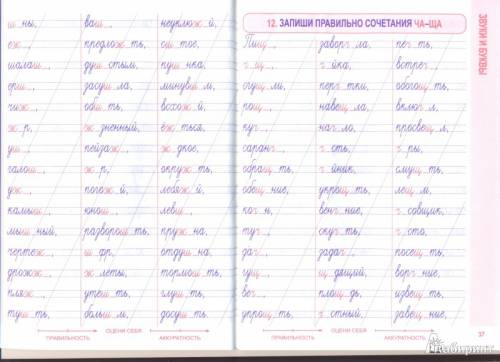 ш_ны, ваш_, неуклюж_й,
еж_, предлож_ть, ош_тое,
шалаш_, душ_стым, пуш_нка,
ерш_, засуш_ла, минувш_м,
чиж_, обш_ть, восхож_й,
ж_р, ж_зненный, еж_ться,
уш_, пейзаж_, ж_дкое,
галош_, ж_р, окруж_ть,
уж_, погож_й, лебяж_й,
камыш_, юнош_, левш_,
мыш_ный, разворош_ть, пруж_на,
чертеж_, ш_фр, отдуш_на,
дрожж_, ж_леты, тормош_ть,
пляж_, утеш_ть, глуш_ть,
туш_ть, больш_м, досуш_ть,
ПРАВИЛЬНОСТЬ ОЦЕНИ СЕБЯ АККУРАТНОСТЬ
12. ЗАПИШИ ПРАВИЛЬНО СОЧЕТАНИЯ ЧА–ЩА
Пищ_, заворч_ла, печ_ть,
ч_щ_, ч_йка, встреч_,
огущ_ли, перч_тки, обогощ_ть,
рощ_, навещ_ла, включ_л,
куч_, нач_ло, просвещ_л,
саранч_, ч_ть, ч_ры,
обращ_ть, ч_йник, смущ_ть,
обещ_ние, укрощ_ть, лещ_м,
коч_н, венч_ние, ч_совщик,
туч_, скуч_ть, ч_сто,
дач_, задач_, посещ_ть,
гущ_, щ_дящий, ворч_ние,
веч_, площ_дь, извещ_ть,
упрощ_ть, ч_стный, завещ_ние,
ПРАВИЛЬНОСТЬ ОЦЕНИ СЕБЯ АККУРАТНОСТЬ
ЗВУКИ И БУКВЫ
37
Лабиринт